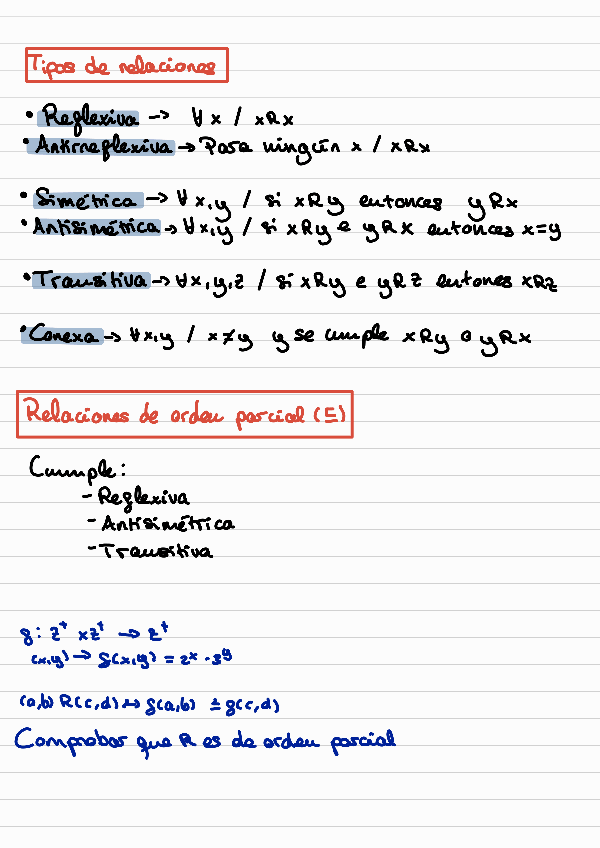 Tipos de relaciones
• Reflexiva -> ∀ x / xRx
• Antirreflexiva -> Para ningún x / xRx
• Simétrica -> ∀ x,y / si xRy entonces yRx
• Antisimétrica -> ∀x,y / si xRy e yRx entonces x=y
• Transitiva -> ∀x,y,z / si xRy e yRz entonces xRz
• Conexa -> ∀x,y / x≠y y se cumple xRy o yRx
Relaciones de orden parcial (≤)
Cumple:
- Reflexiva
- Antisimétrica
- Transitiva
f: Z⁺ x Z⁺ -> Z⁺
(x,y) -> f(x,y) = 2ˣ · 3ʸ
(a,b) R (c,d) <-> f(a,b) ≤ f(c,d)
Comprobar que R es de orden parcial